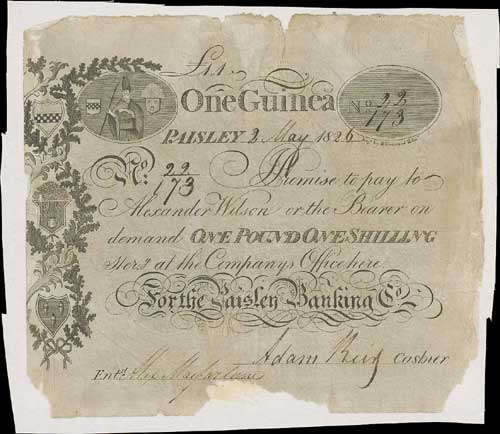 £1.1.
One Guinea
No 22/173
PAISLEY 2 May 1826
No. 22/173 I Promise to pay to
Alexander Wilson or the Bearer on
demand ONE POUND ONE SHILLING
Ster^g at the Companys Office here
For the Paisley Banking Co.
Adam Keir Cashier
Ent^d Macfarlane